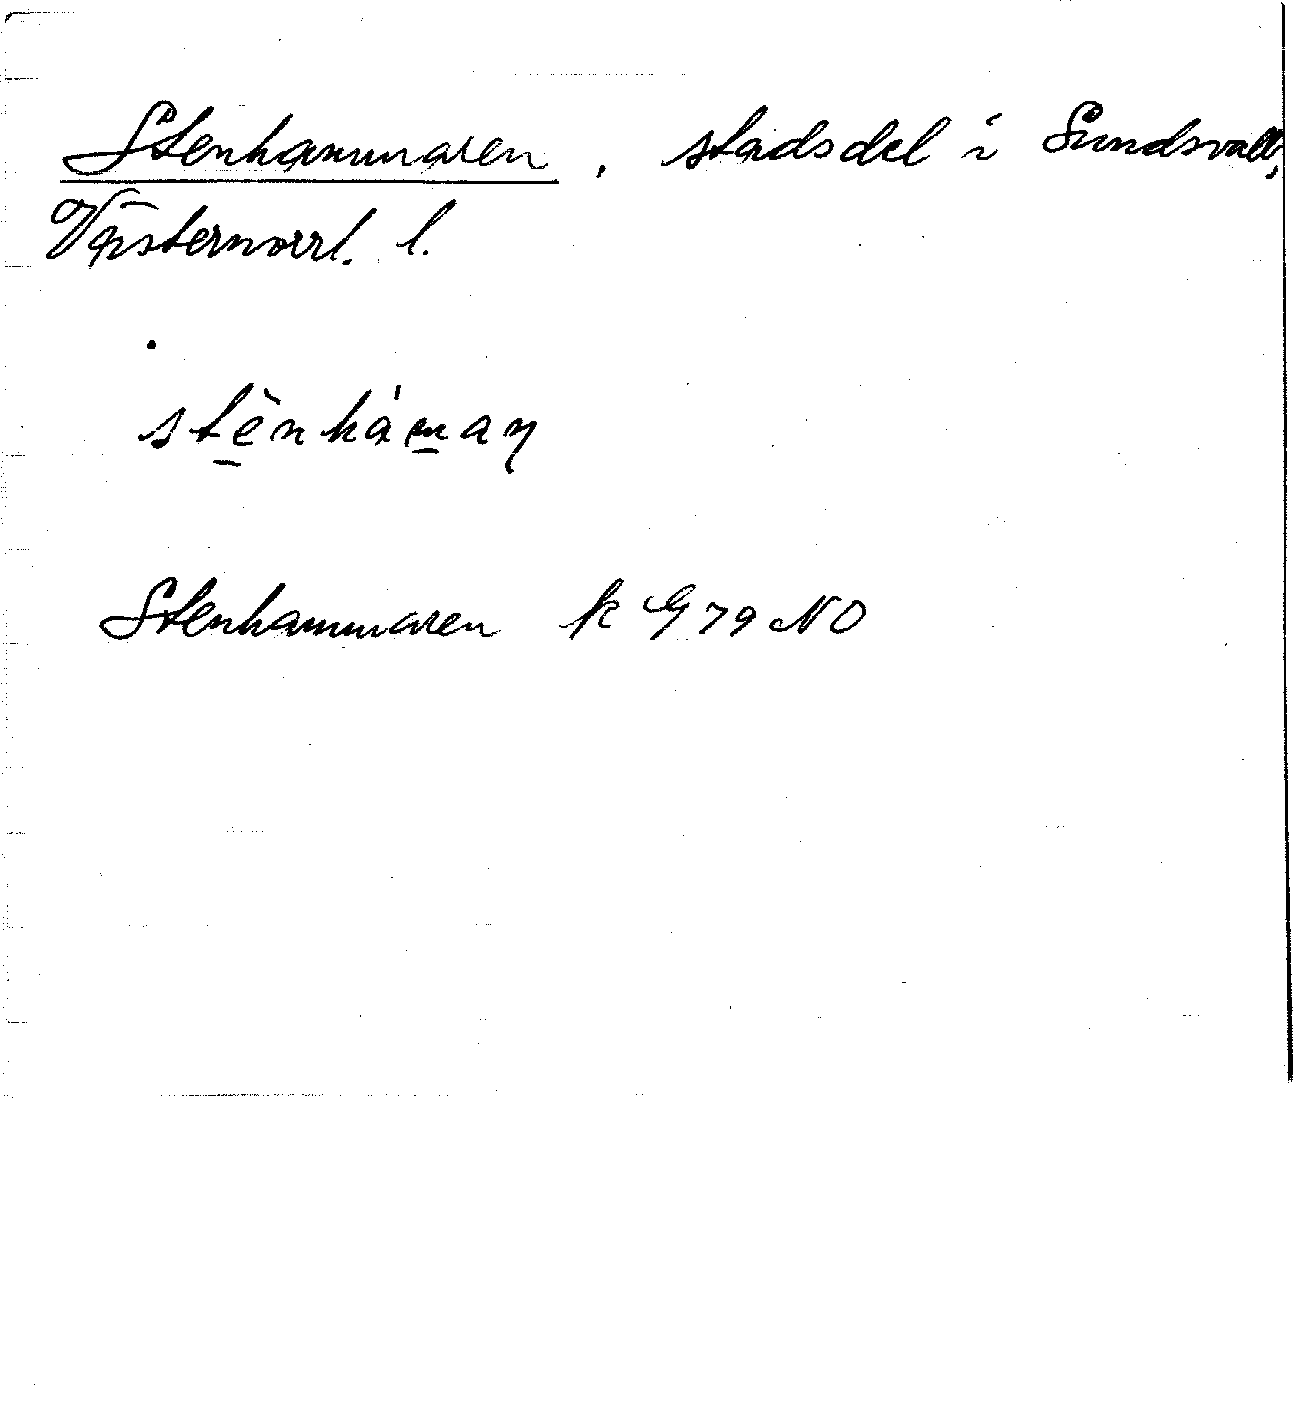 Stenhammaren, stadsdel i Sundsvall,
Västernorrl. l.
stè̱nhám̱aɳ
Stenhammaren k G 79 NO